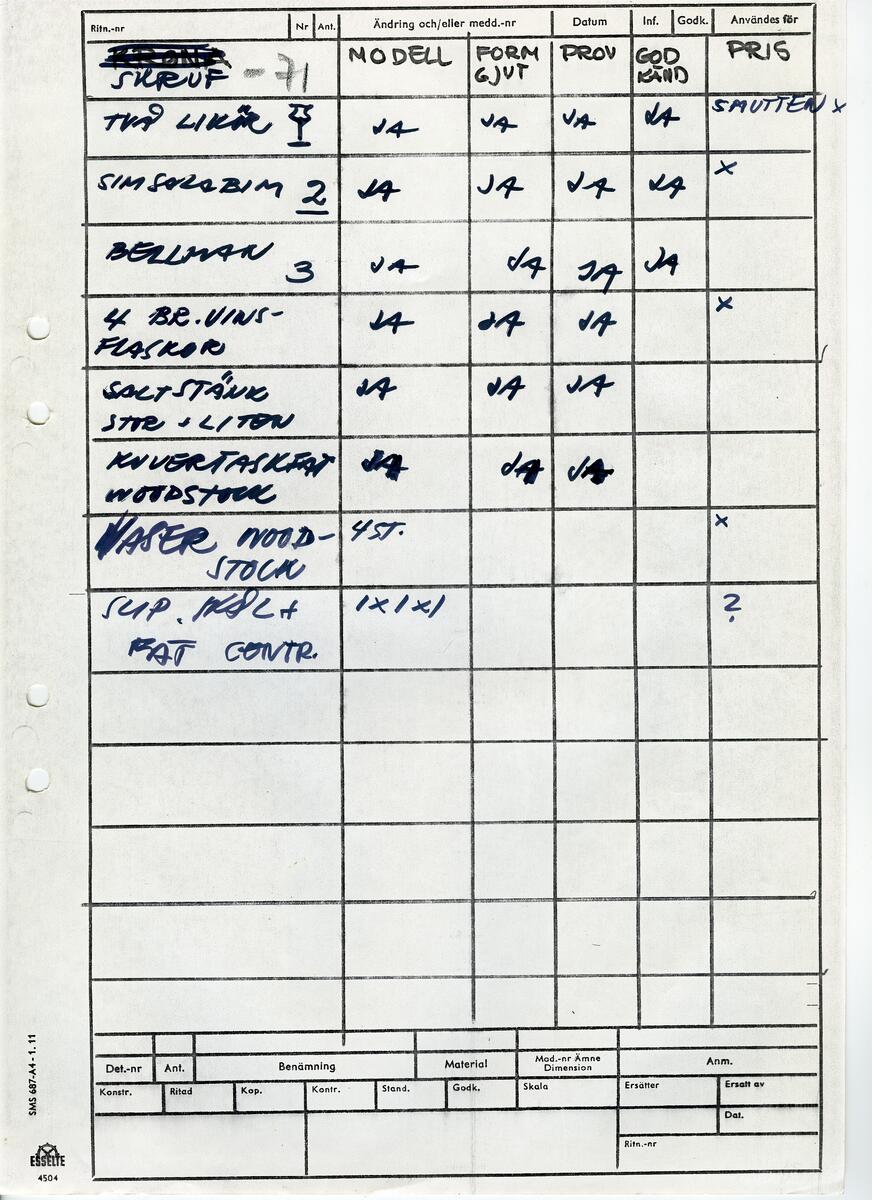 Ritn.-nr Nr Ant. Ändring och/eller medd.-nr Datum Inf. Godk. Användes för
KRONA MODELL FORM PROV GOD PRIS
SKRUF -71 GJUT KÄND
TVÅ LIKÖR JA JA JA JA SMUTTEN x
SIMSALABIM 2 JA JA JA JA x
BELLMAN 3 JA JA JA JA
4 BR.VINS- JA JA JA x
FLASKOR
SALTSTÄNK JA JA JA
STOR + LITEN
KUVERTASKFAT JA JA JA
WOODSTOCK
VASER WOOD- 4 ST. x
STOCK
SLIP. SKÅL + 1x1x1 ?
FAT CONTR.
Det.-nr Ant. Benämning Material Mod.-nr Ämne Anm.
Dimension
Konstr. Ritad Kop. Kontr. Stand. Godk. Skala Ersätter Ersatt av
Dat.
Ritn.-nr
SMS 687-A4-1.11
ESSELTE
4504